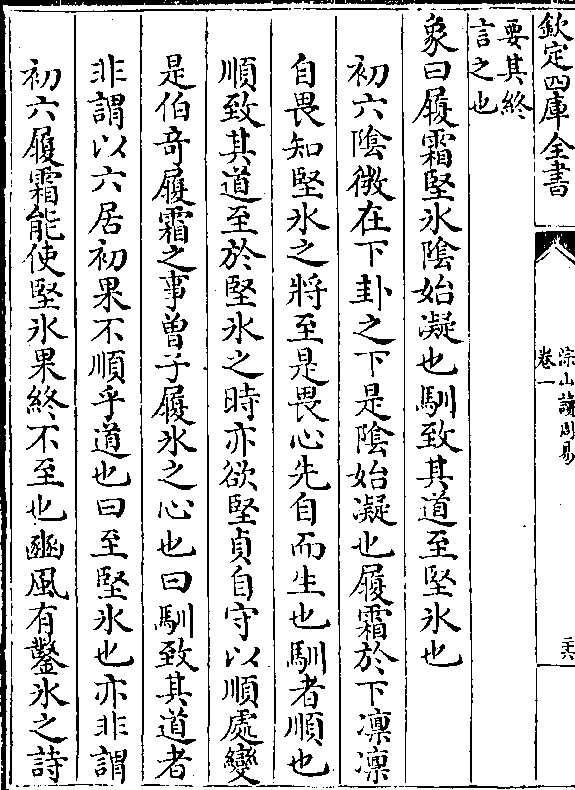 欽定四庫全書
淙山讀周易
卷一
二六
要其終
言之也
象曰履霜堅氷隂始凝也馴致其道至堅氷也
初六隂微在下卦之下是隂始凝也履霜於下凛凛
自畏知堅氷之將至是畏心先自而生也馴者順也
順致其道至於堅氷之時亦欲堅貞自守以順處變
是伯奇履霜之事曽子履氷之心也曰馴致其道者
非謂以六居初果不順乎道也曰至堅氷也亦非謂
初六履霜能使堅氷果終不至也豳風有鑿氷之詩